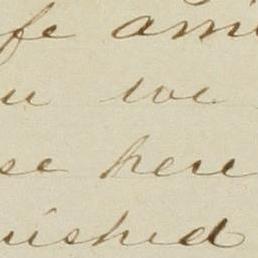 fe ami
u we
se here
uished